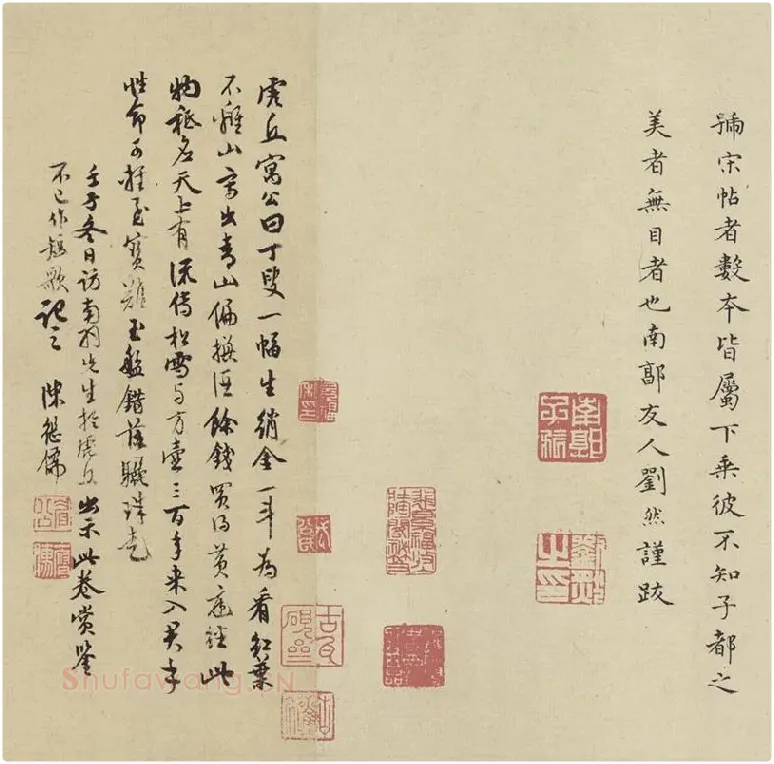 號宋帖者數本皆屬下乗彼不知子都之
美者無目者也南鄰友人劉然謹跋
虎丘寓公曰丁叟一幅生綃金一斗為看紅葉
不離山寧出青山偏換酒餘錢買得黃庭經此
物秪合天上有流傳松雪與方壺三百年來入君手
性命可輕至寶難玉槃錯落驪珠走
壬子冬日訪南羽先生於虎丘出示此卷賞鑒
不已作短歌記之 陳繼儒
Shufawang.CN